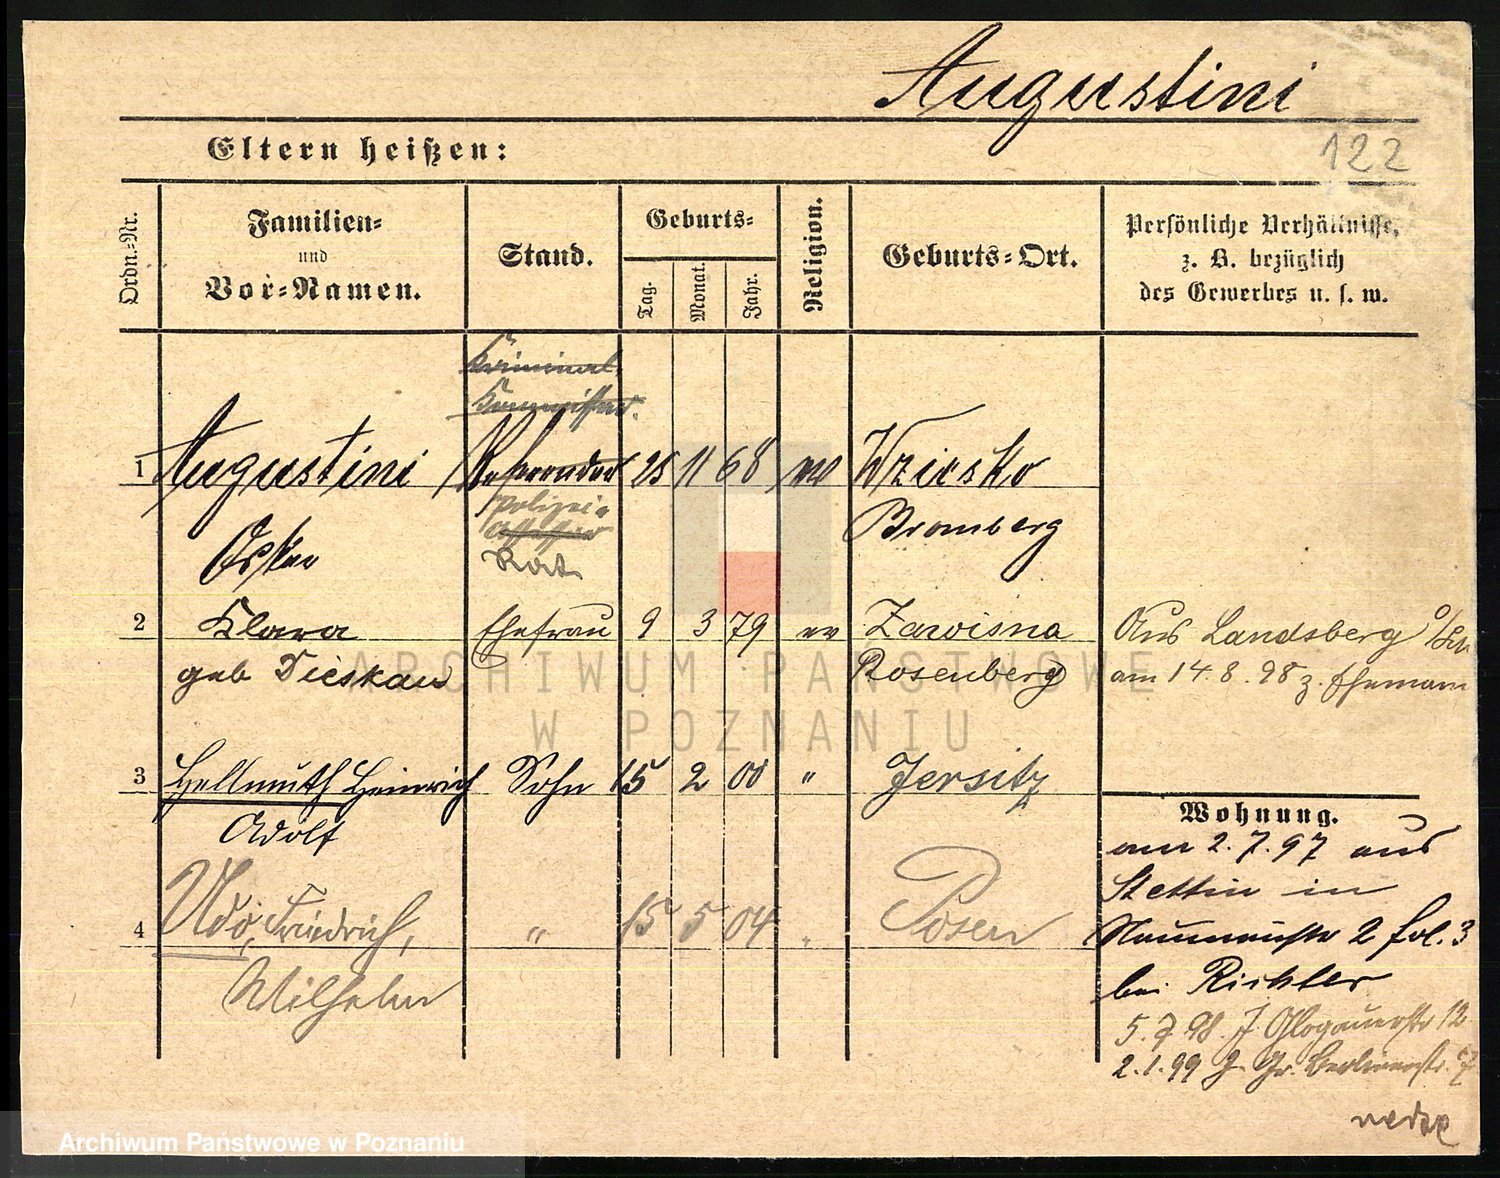 Augustini
122
Eltern heißen:
Ordn.-Nr.
Familien-
und
Vor-Namen.
Stand.
Geburts-
Tag.
Monat.
Jahr.
Religion.
Geburts-Ort.
Persönliche Verhältnisse,
z. B. bezüglich
des Gewerbes u. s. w.
Kriminal
Kommissar.
1 Augustini Referendar 25 11 68 ev
Polizei
Assessor
Rat
Oskar
Bromberg
2 Klara Ehefrau 9 3 79 ev Zawisna Aus Landsberg O/Sch
geb Dieskau Rosenberg am 14.8.98 z. Ehemann
3 Hellmuth Heinrich Sohn 15 2 00 " Jersitz
Adolf
4 Udo, Friedrich, " 15 5 04 " Posen
Wilhelm
Wohnung.
am 2.7.97 aus
Stettin in
Naumannstr 2 fol. 3
bei Richter
5.7.98. J. Glogauerstr 12
2.1.99 J. Gr. Berlinerstr. 7
ARCHIWUM PAŃSTWOWE
W POZNANIU
Archiwum Państwowe w Poznaniu